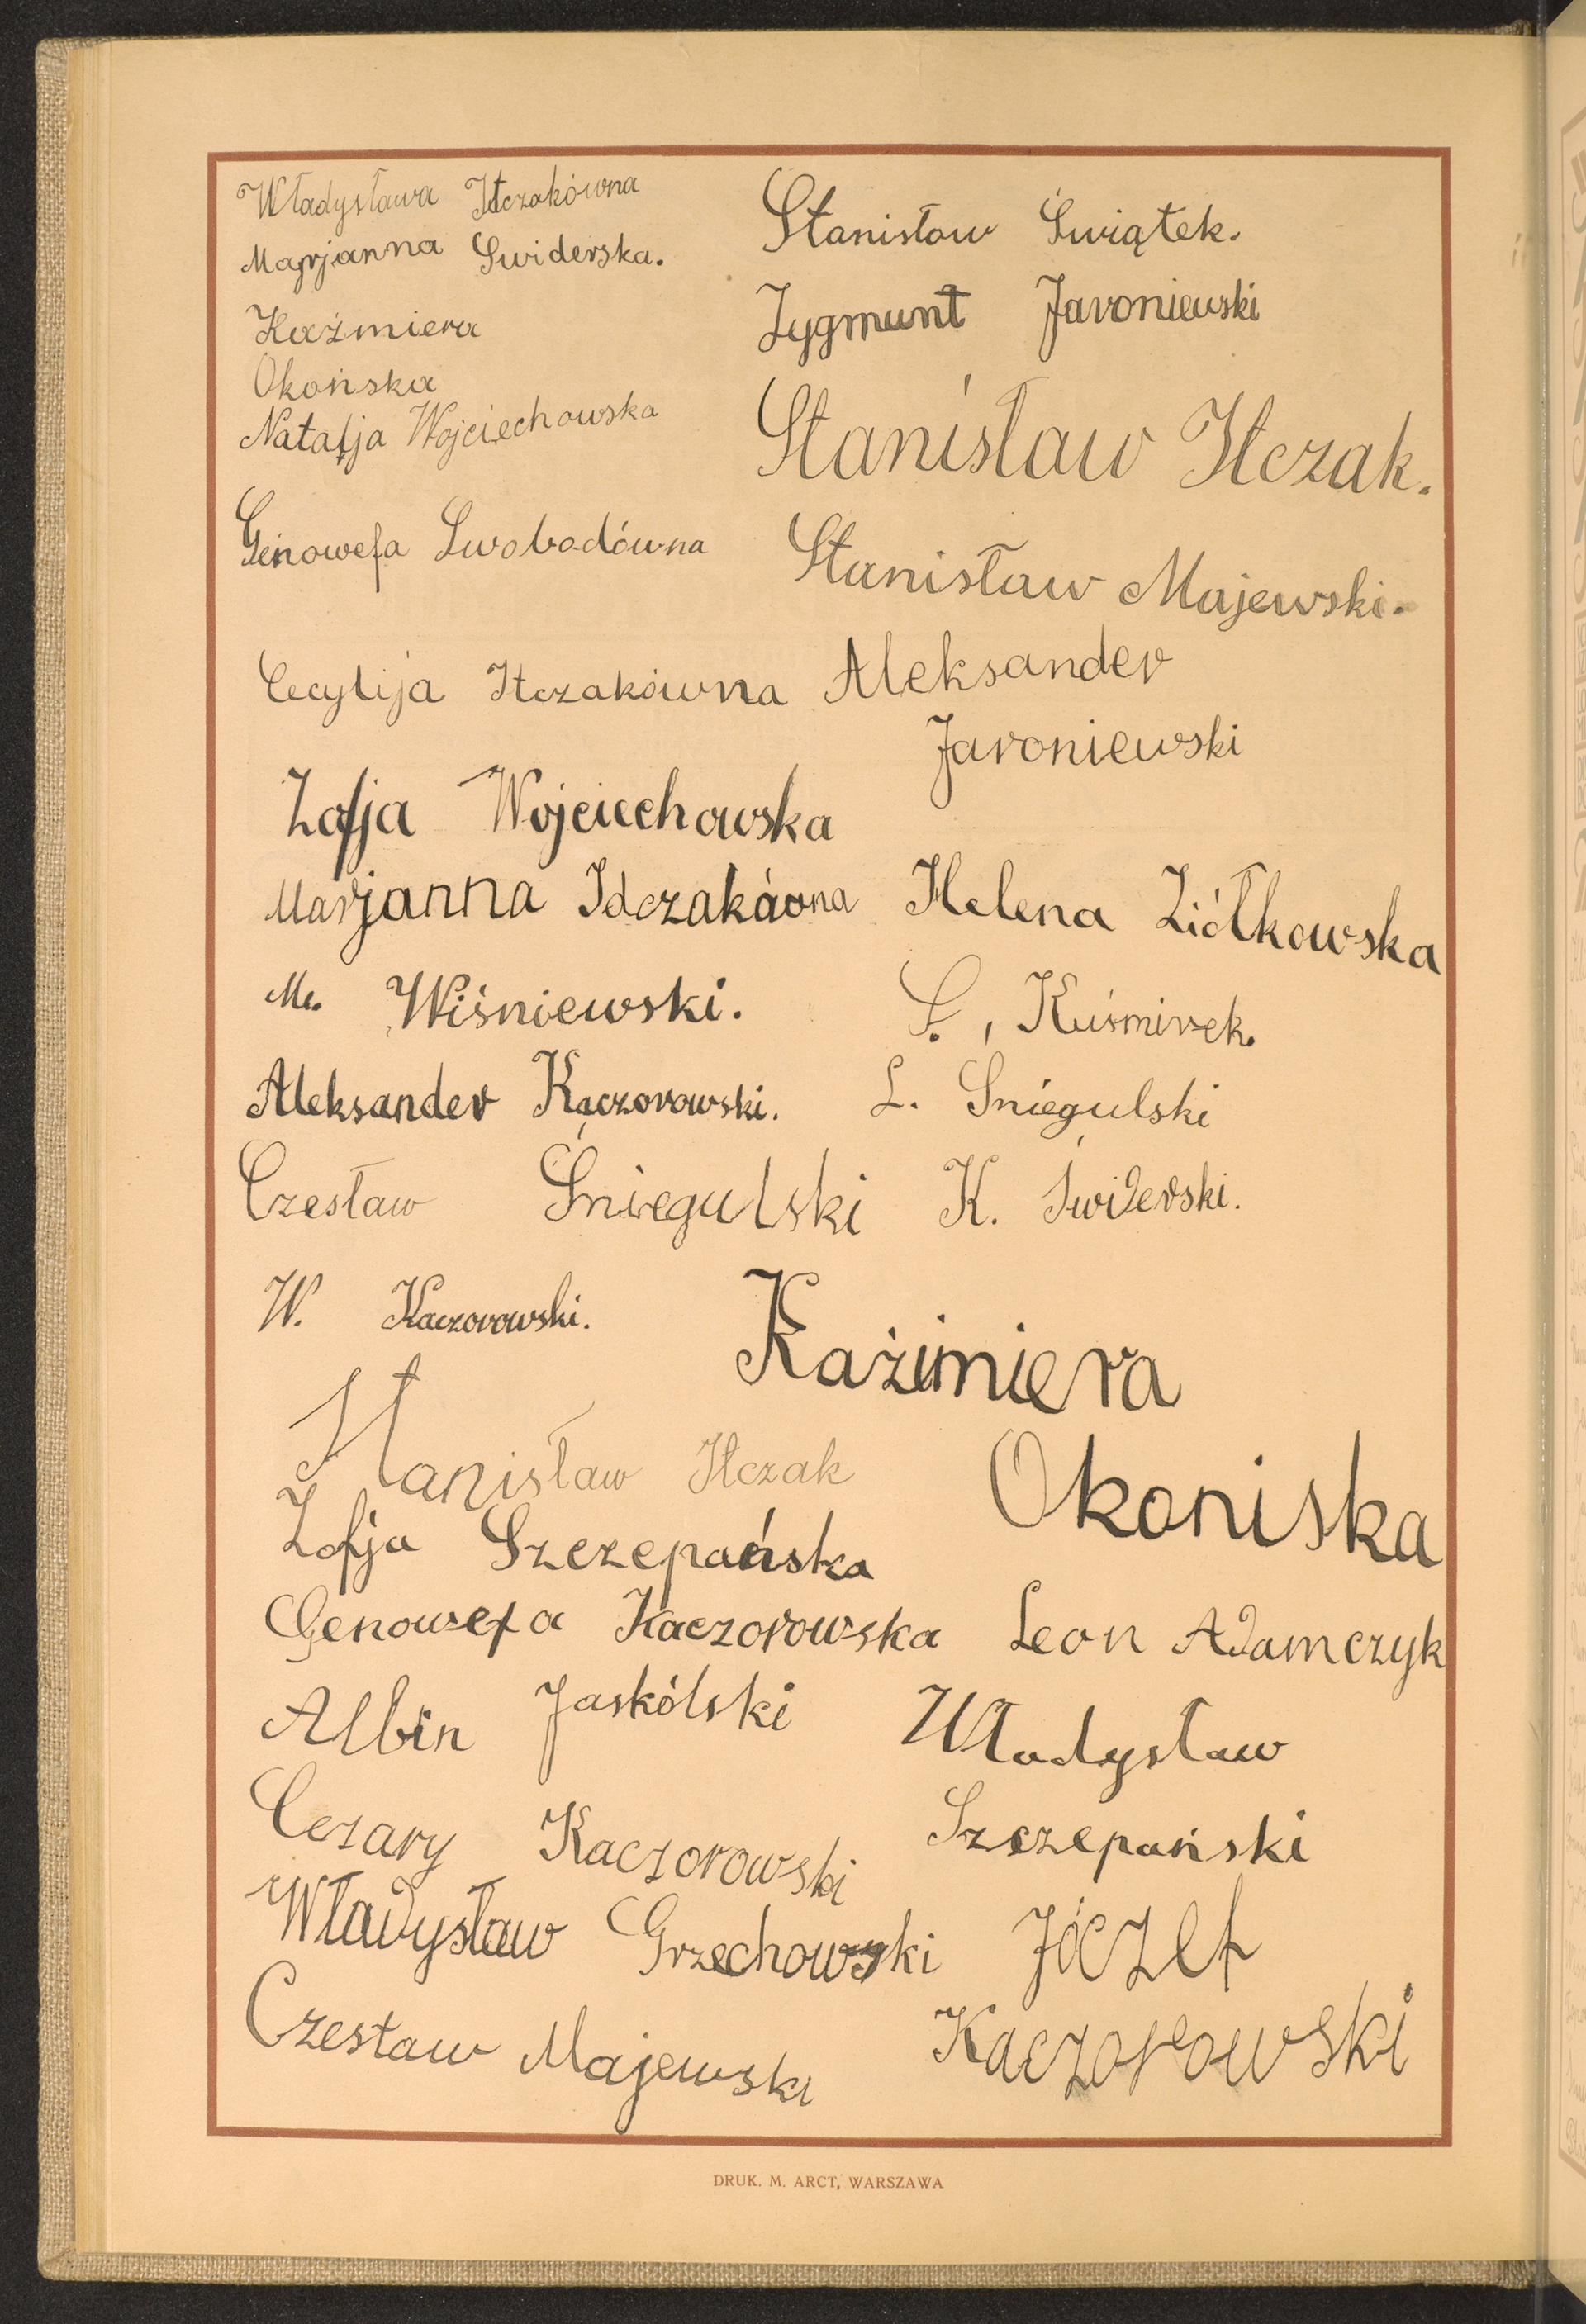 Władysława Itczakówna
Marjanna Swiderska.
Kaźmiera
Okońska
Natalja Wojciechowska
Genowefa Swobodówna
Cecylija Itczakówna
Zofja Wojciechowska
Marjanna Idczakówna
M. Wiśniewski.
Aleksander Kaczorowski.
Czesław Śniegulski
W. Kaczorowski.
Stanisław Itczak
Zofja Szczepańska
Genowefa Kaczorowska
Albin Jaskólski
Cezary Kaczorowski
Władysław Grzechowski
Czesław Majewski
Stanisław Świątek.
Zygmunt Jaroniewski
Stanisław Itczak.
Stanisław Majewski.
Aleksander
Jaroniewski
Helena Ziółkowska
S., Kuśmirek.
L. Śniegulski
K. Świderski.
Każimiera
Okoniska
Leon Adamczyk
Władysław
Szczepański
Jóczef
Kaczorowski
DRUK. M. ARCT, WARSZAWA